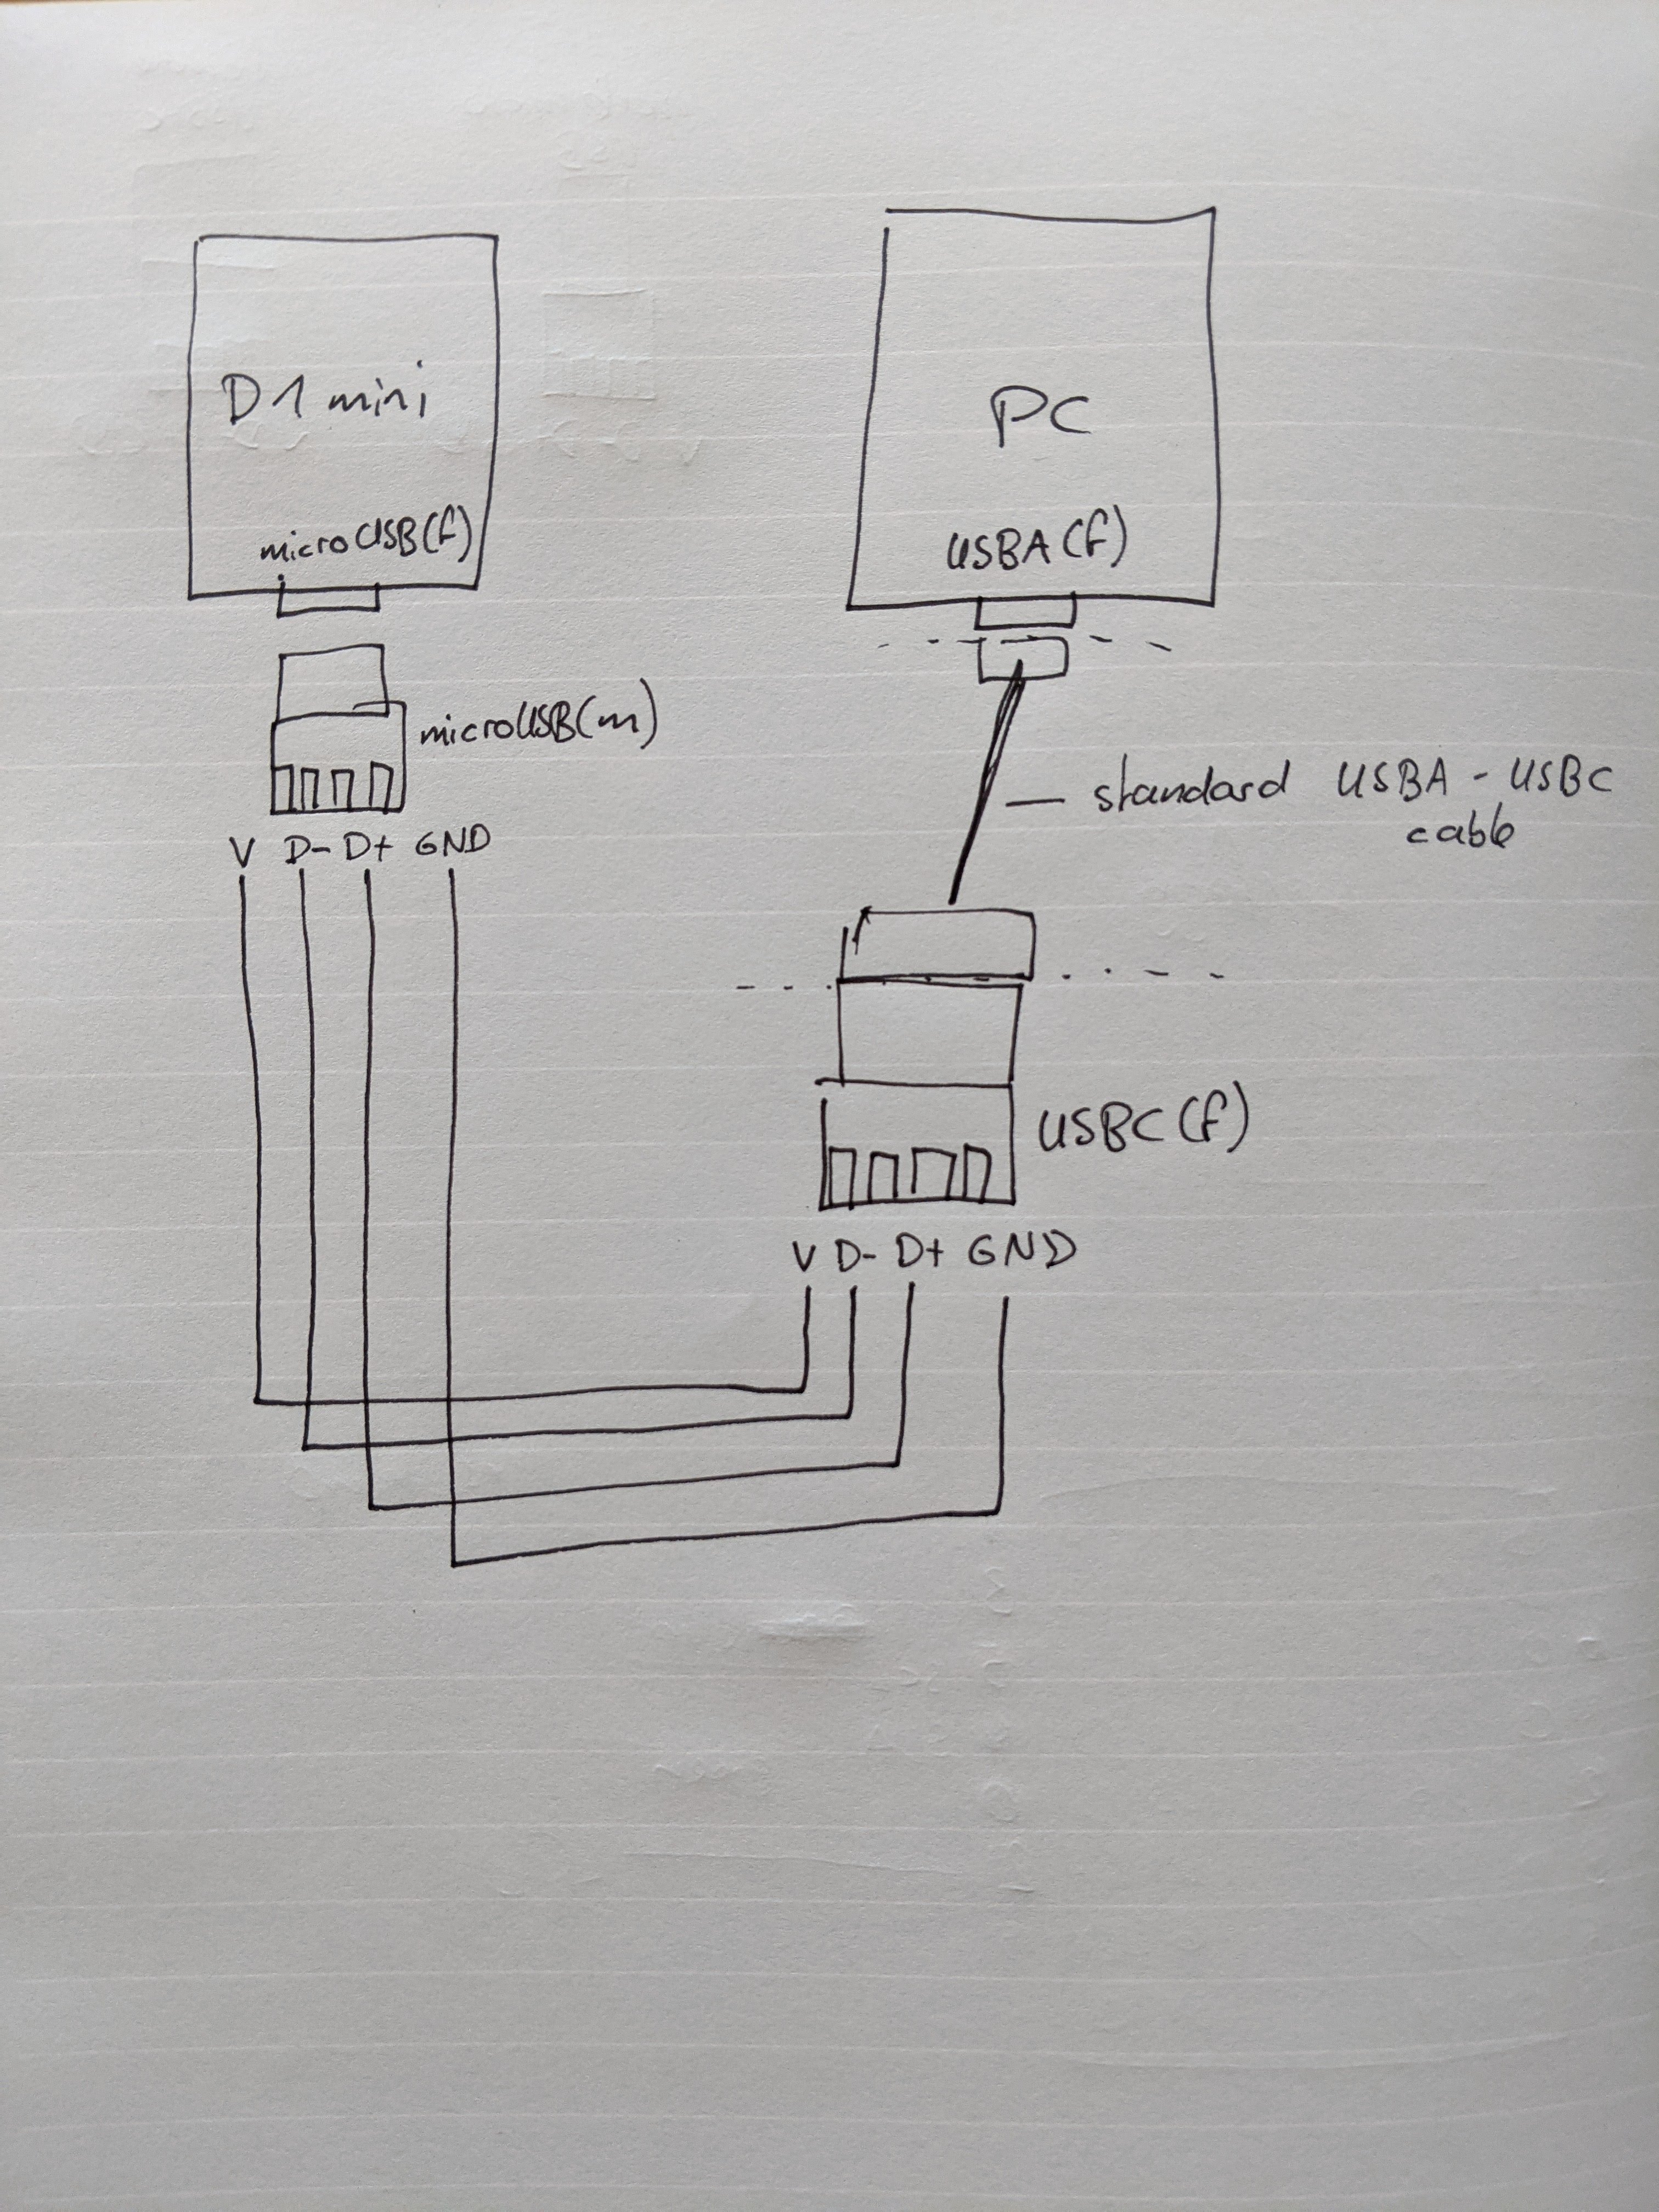 D1 mini
microUSB(f)
PC
USBA(f)
microUSB(m)
V D- D+ GND
standard USBA - USBC
cable
USBC(f)
V D- D+ GND